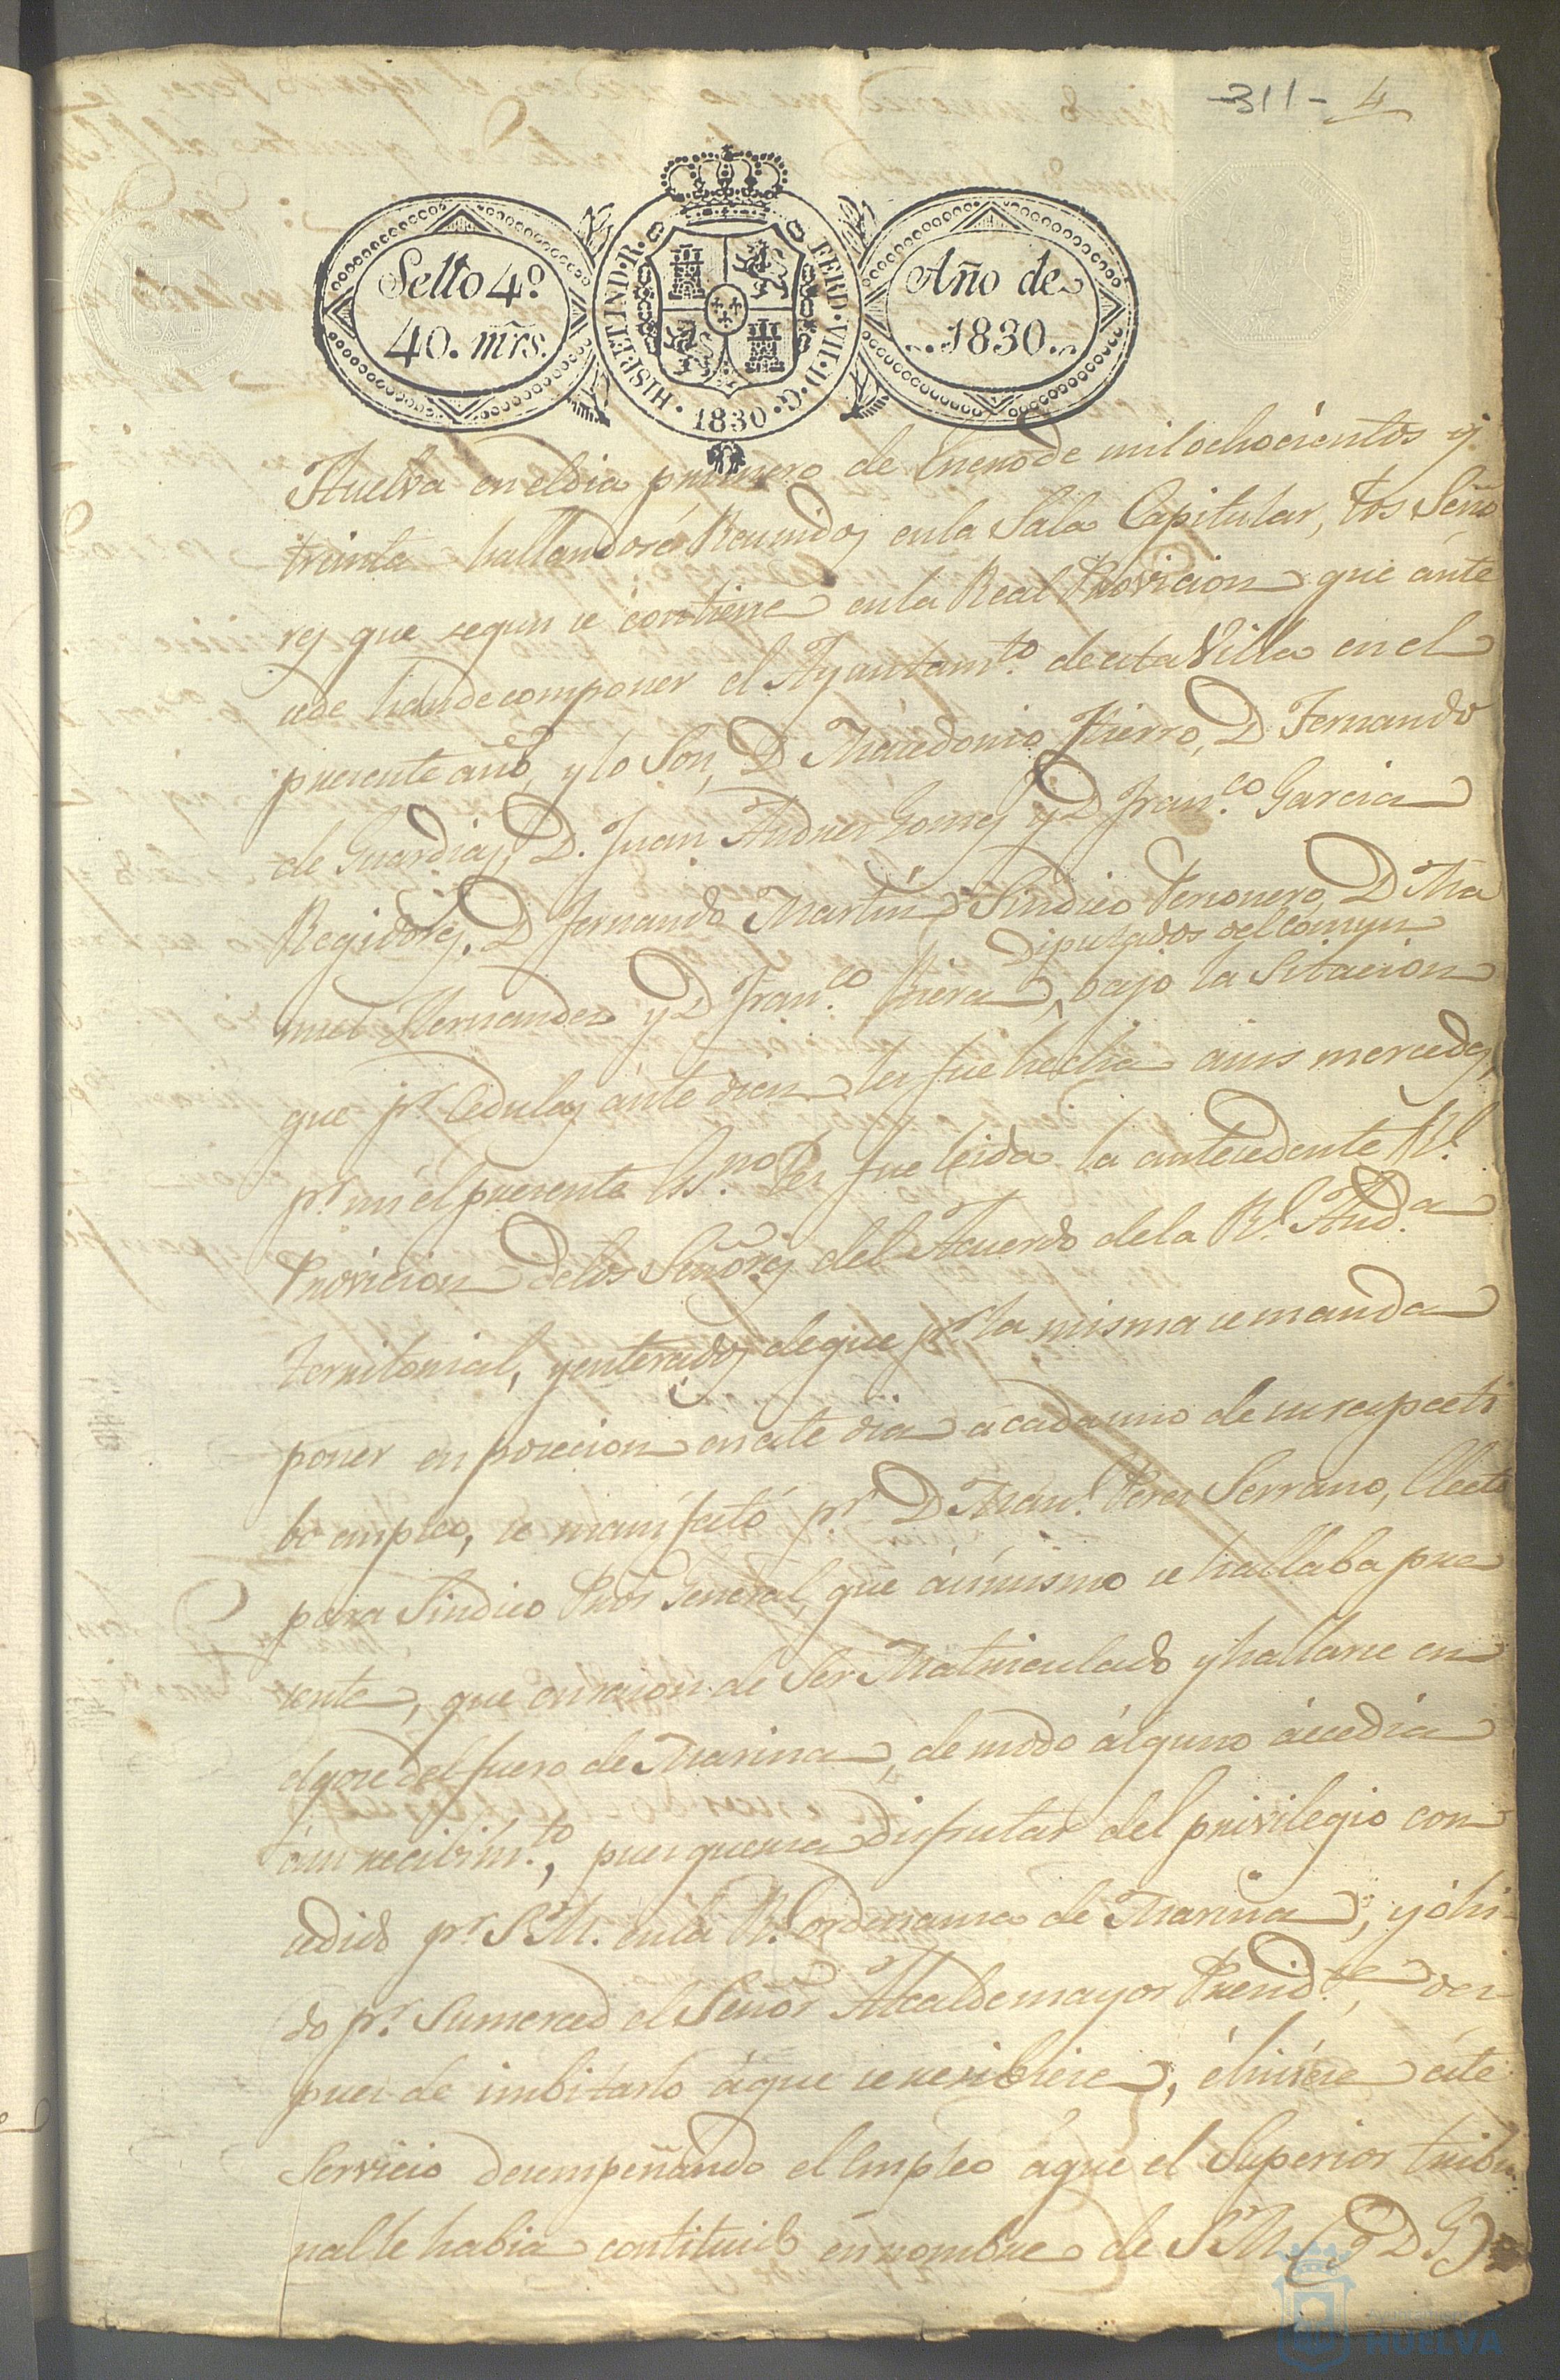 311 - 4
Sello 4º.
40. mrs.
HISP. ET IND. R. FERD. VII. D. G. 1830
Año de
1830.
Huelva en el dia primero de Enero de mil ochocientos y
treinta hallandose Reunidos en la Sala Capitular, los Seño
res que segun se contiene en la Real Provicion que ánte
cede han de componer el Ayuntamto. de esta Villa en el
presente año, y lo Son, D Macedonio Hierro, D Fernando
de Guardia, D. Juan Andres Gomes y D Franco. Garcia
Regidores. D Fernando Martin Sindico Personero, D Ma
Diputados del comun
nuel Hernandez y D Franco. bajo la Sitacion
que pr. Cedulas ánte dien les fue hecha a sus mercedes,
pr. mi el presente Esno. les fue leida la antecedente Rl.
Provicion de los Señores del Acuerdo de la Rl. Auda.
territorial, y enterados de que pr. la misma se manda
poner en pocecion en este dia a cada uno de su respecti
bo empleo, se manifestó pr. D Manl. Peres Serrano, Electo
para Sindico Pror General, que ásimismo se hallaba pre
sente, que en racion de Ser Matriculado y hallarse en
el gose del fuero de Marina, de modo álguno áccedia
á su recibimto., pues queria disfrutar del privilegio con
cedido pr. S. M. en la Rl. ordenansa de Marina; y óhi-
do pr. Su merced el Señor Alcalde mayor Presidte., des-
pues de imbitarlo áque se resibiese, é hisiese éste
Servicio desempeñando el Empleo áque el Superior tribu-
nal le habia contituido en nombre de S M (q D G)
HUELVA